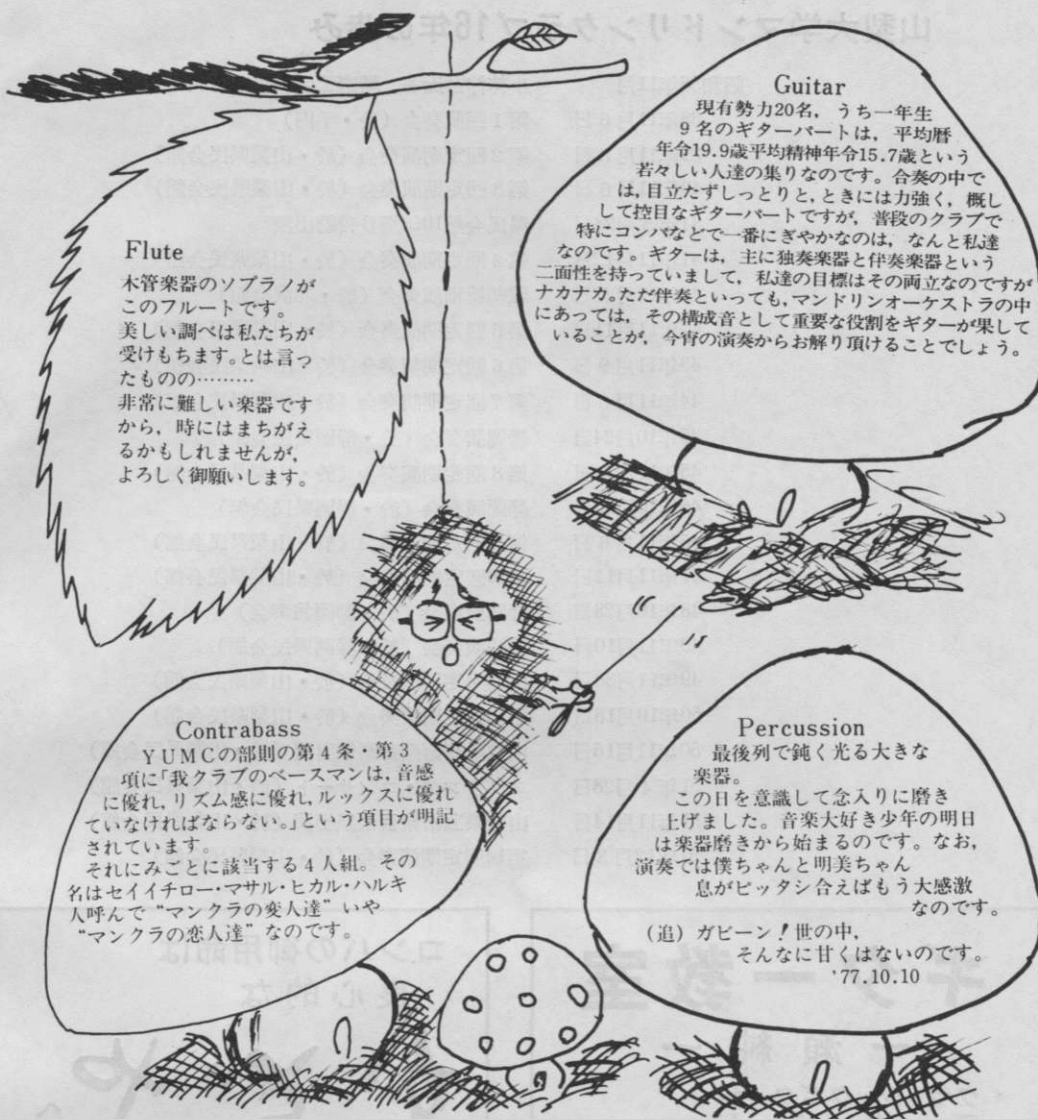 Flute
木管楽器のソプラノが
このフルートです。
美しい調べは私たちが
受けもちます。とは言っ
たものの………
非常に難しい楽器です
から，時にはまちがえ
るかもしれませんが，
よろしく御願いします。
Guitar
現有勢力20名，うち一年生
9名のギターパートは，平均暦
年令19.9歳平均精神年令15.7歳という
若々しい人達の集りなのです。合奏の中で
は，目立たずしっとりと，ときには力強く，概し
して控目なギターパートですが，普段のクラブで
特にコンパなどで一番にぎやかなのは，なんと私達
なのです。ギターは，主に独奏楽器と伴奏楽器という
二面性を持っていまして，私達の目標はその両立なのですが
ナカナカ。ただ伴奏といっても，マンドリンオーケストラの中
にあっては，その構成音として重要な役割をギターが果して
いることが，今宵の演奏からお解り頂けることでしょう。
Contrabass
YUMCの部則の第4条・第3
項に「我クラブのベースマンは，音感
に優れ，リズム感に優れ，ルックスに優れ
ていなければならない。」という項目が明記
されています。
それにみごとに該当する4人組。その
名はセイイチロー・マサル・ヒカル・ハルキ
人呼んで“マンクラの変人達”いや
“マンクラの恋人達”なのです。
Percussion
最後列で鈍く光る大きな
楽器。
この日を意識して念入りに磨き
上げました。音楽大好き少年の明日
は楽器磨きから始まるのです。なお，
演奏では僕ちゃんと明美ちゃん
息がピッタシ合えばもう大感激
なのです。
(追) ガビーン！世の中，
そんなに甘くはないのです。
'77.10.10